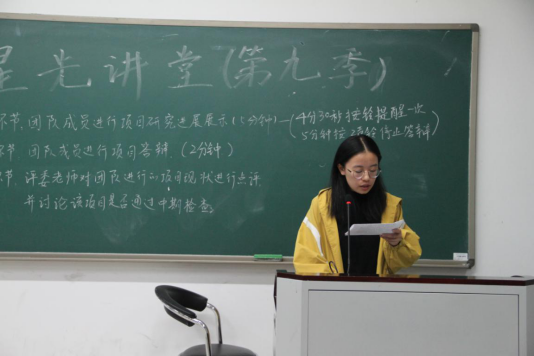 星光讲堂(第九季)
环节、团队成员进行项目研究进展展示(5分钟)—(4分30秒按铃提醒一次
5分钟按铃停止答辩)
环节 团队成员进行项目答辩 (2分钟)
环节、评委老师对团队进行的项目现状进行点评,
并讨论该项目是否通过中期检查。